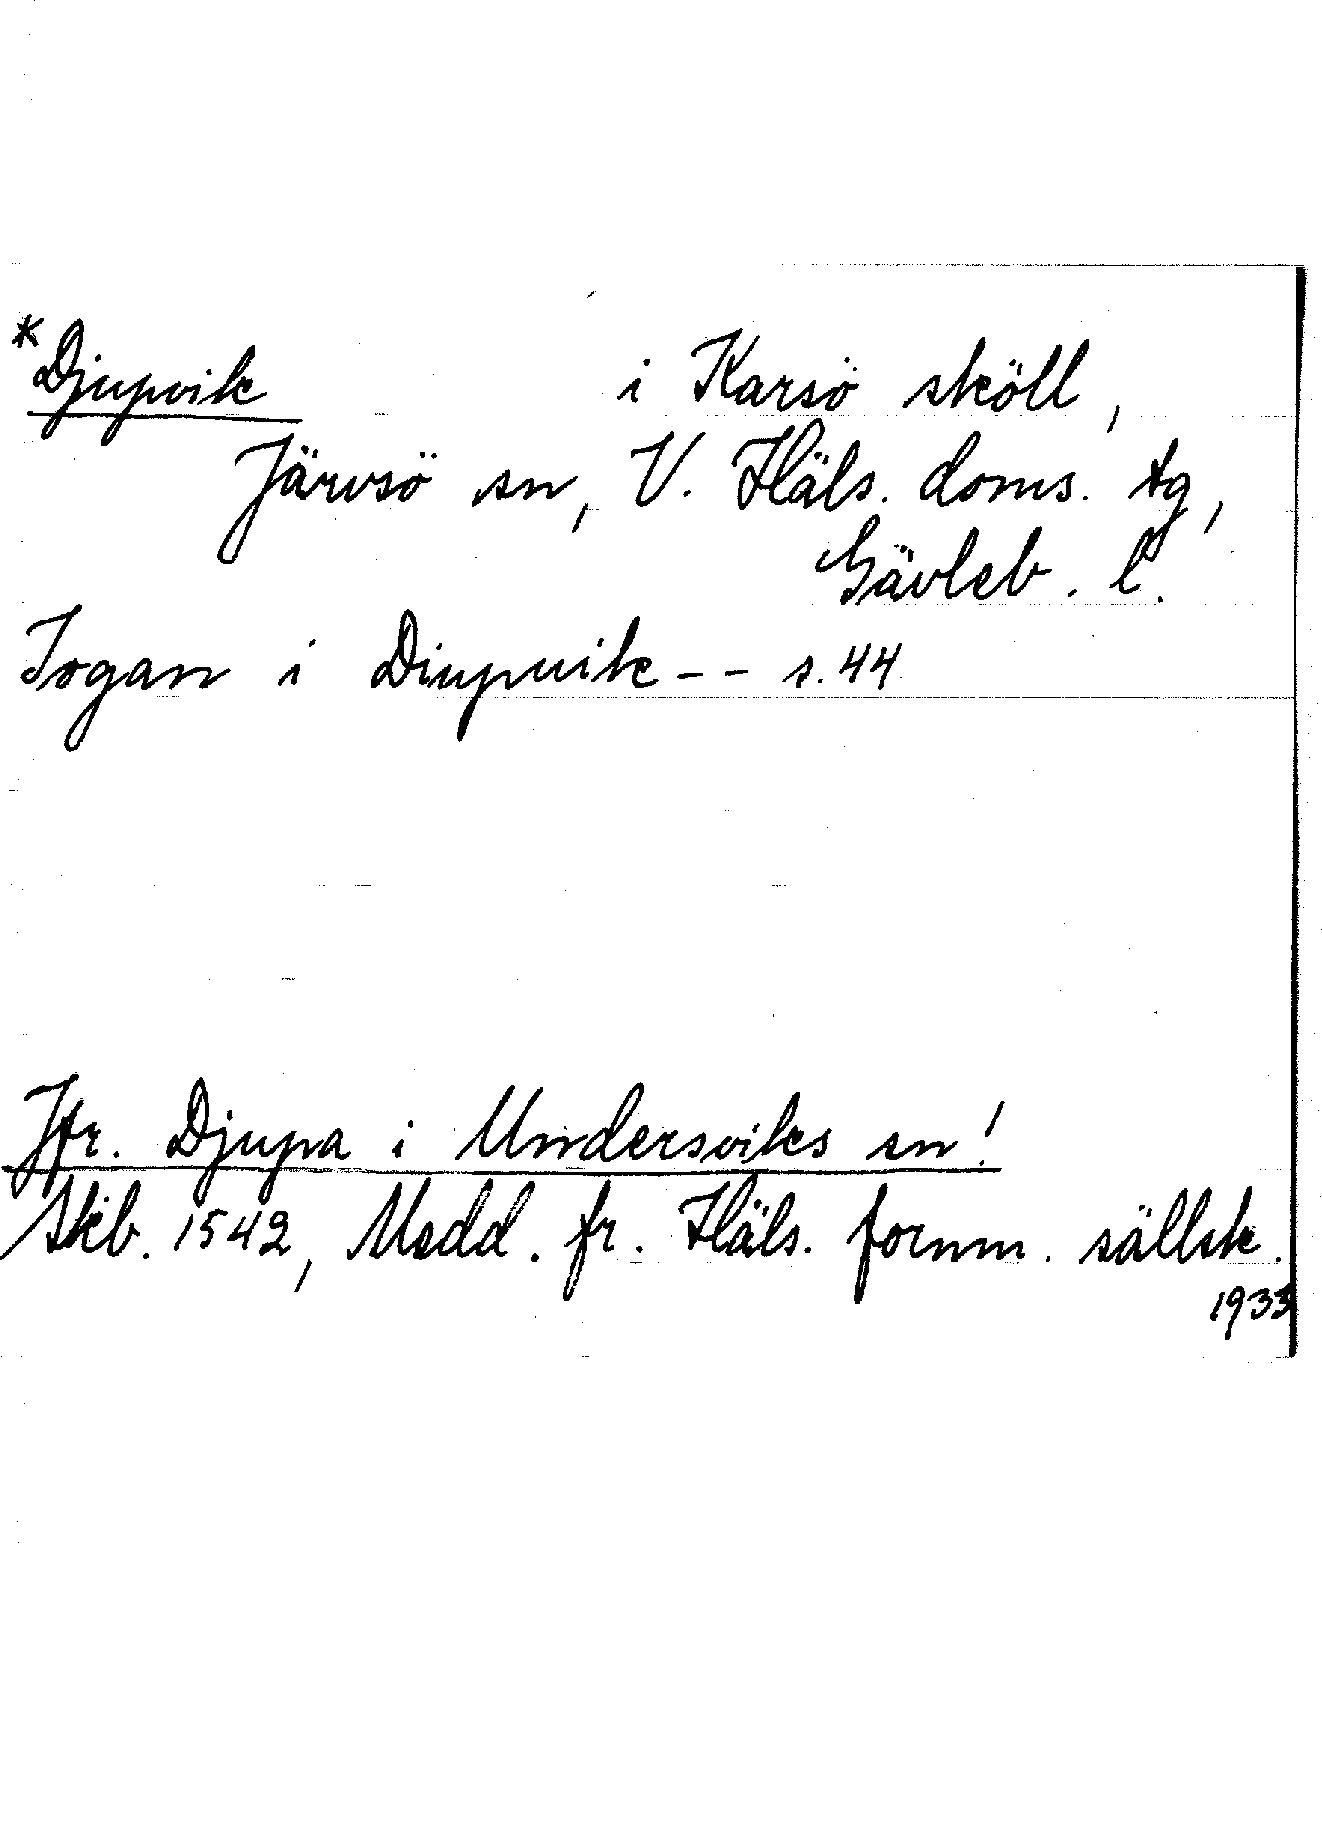 *Djupvik i Karsö sköll,
Järvsö sn, V. Häls. doms. tg,
Gävleb. l.
Jogan i Diupuik - - s. 44
Jfr. Djupa i Undersviks sn!
Skb. 1542, Medd. fr. Häls. fornm. sällsk.
1933